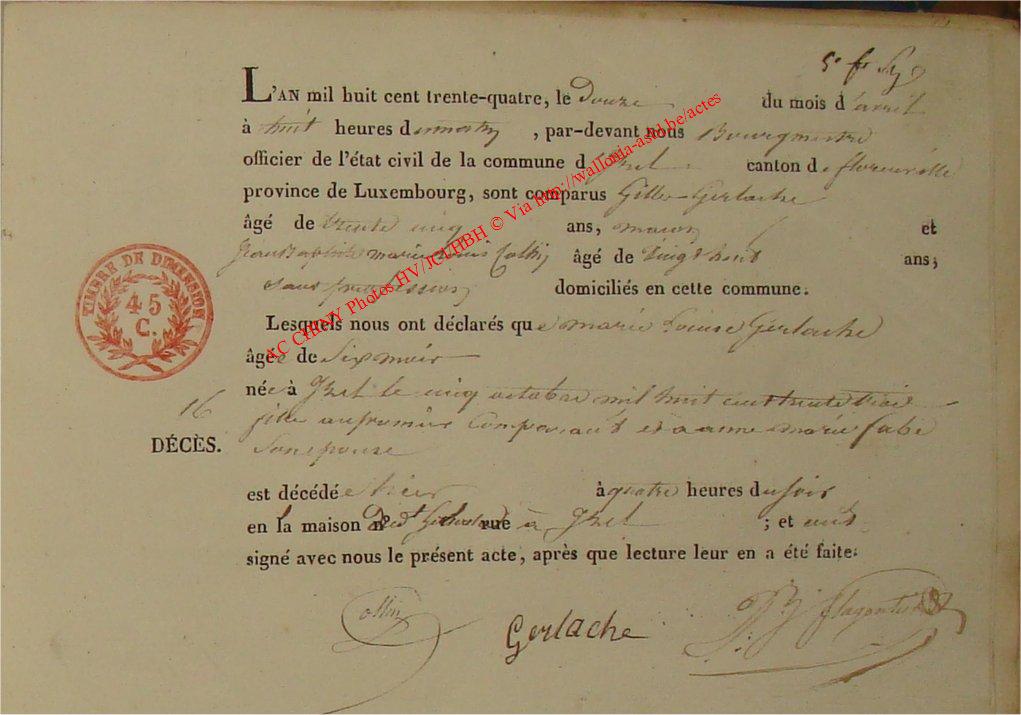 L'AN mil huit cent trente-quatre, le Douze du mois d'avril
à huit heures du matin, par-devant nous Bourgmestre
officier de l'état civil de la commune d'Izel canton de florenville
province de Luxembourg, sont comparus Gille Gerlache
âgé de trente cinq ans, maçon et
Jean Baptiste marie Louis Collin âgé de vingt huit ans,
sans profession domiciliés en cette commune.
Lesquels nous ont déclarés que marie Louise Gerlache
âgée de Six mois
née à Izel le cinq octobre mil huit cent trente trois
16
fille au premier Comparant et a anne marie
DÉCÈS.
Son epouse
est décédée hier à quatre heures du soir
en la maison n° rue à Izel ; et ont
signé avec nous le présent acte, après que lecture leur en a été faite.
Collin
Gerlache
TIMBRE DE DIMENSION
45
C.
AC CHINY Photos HV/JCT/HBH © Via http://wallonia-asbl.be/actes